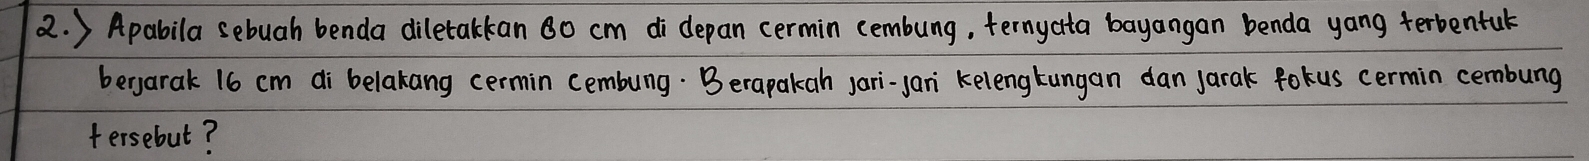 2.) Apabila sebuah benda diletakkan 80 cm di depan cermin cembung, ternyata bayangan benda yang terbentuk
berjarak 16 cm di belakang cermin cembung. Berapakah jari-jari kelengkungan dan jarak fokus cermin cembung
tersebut?